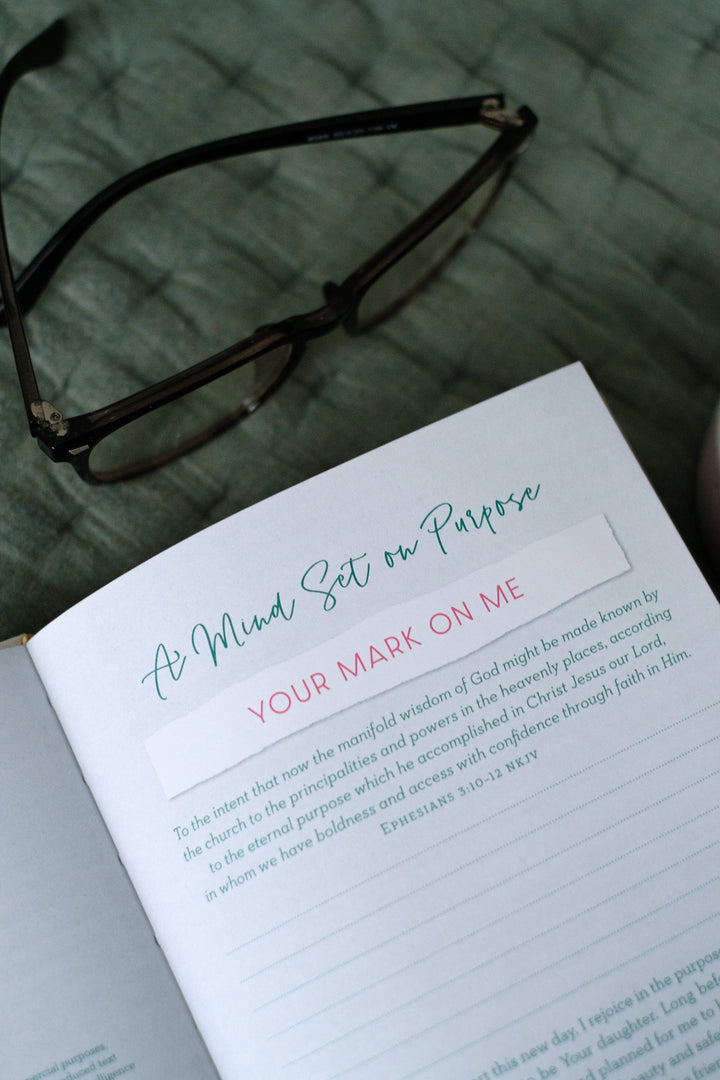 A Mind Set on Purpose
YOUR MARK ON ME
To the intent that now the manifold wisdom of God might be made known by
the church to the principalities and powers in the heavenly places, according
to the eternal purpose which he accomplished in Christ Jesus our Lord,
in whom we have boldness and access with confidence through faith in Him.
EPHESIANS 3:10–12 NKJV
this new day, I rejoice in the
be Your daughter. Long
planned for me to
and